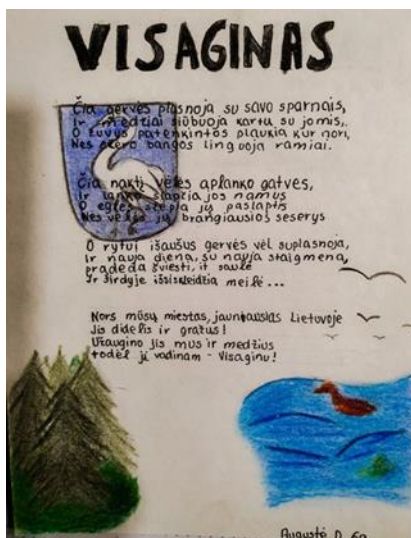 VISAGINAS
Čia gervės plasnoja su savo sparnais,
Ir medžiai siūbuoja kartu su jomis,
O žuvys patenkintos plaukia kur nori,
Nes ežero bangos linguoja ramiai.
Čia naktį vėlės aplanko gatves,
Ir lanko jos namus
O eglės slepia jų paslaptis
Nes vėlės jų brangiausios seserys
O rytui išaušus gervės vėl suplasnoja,
Ir nauja diena, su nauja staigmena,
pradeda šviesti, it saulė
Ir širdyje išsiskleidžia meilė...
Nors mūsų miestas, jauniausias Lietuvoje
Jis didelis ir gražus!
Užaugino jis mus ir medžius
todėl jį vadinam - Visaginu!
Augustė D. 6a